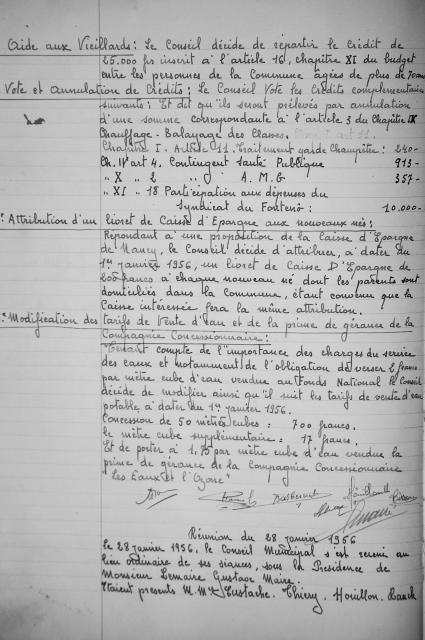 Aide aux Vieillards: Le Conseil décide de répartir le Crédit de
25.000 frs inscrit à l'article 16, chapitre XI du budget
entre les personnes de la Commune âgées de plus de 70 ans
Vote et annulation de Crédits: Le Conseil Vote les Crédits complémentaires
suivants: Et dit qu'ils seront prélevés par annulation
d'une somme correspondante à l'article 3 du Chapitre IX
Chauffage - Balayage des Classes.
Chapitre I. Article 11. Traitement garde Champêtre: 240-
Ch. IV art 4. Contingent Santé Publique 913-
" X " 2 " " A.M.G 357-
" XI " 18 Participation aux dépenses du
Syndicat du Fonteno: 10.000-
Attribution d'un livret de Caisse d'Epargne aux nouveaux nés:
Répondant à une proposition de la Caisse d'Epargne
de Nancy, le Conseil décide d'attribuer, à dater du
1er janvier 1956, un livret de Caisse D'Epargne de
200 francs à chaque nouveau né dont les parents sont
domiciliés dans la Commune, étant convenu que la
Caisse intéressée fera la même attribution.
Modification des tarifs de Vente d'eau et de la prime de gérance de la
Compagnie Concessionnaire:
Tenant compte de l'importance des charges du service
des eaux et notamment de l'obligation de verser 2 francs
par mètre cube d'eau vendue au Fonds National le Conseil
décide de modifier ainsi qu'il suit les tarifs de vente d'eau
potable à dater du 1er janvier 1956.
Concession de 50 mètres cubes: 700 francs.
le mètre cube supplémentaire: 17 francs.
Et de porter à 1,75 par mètre cube d'eau vendue la
prime de gérance de la Compagnie Concessionnaire
"Les Eaux et l'Ozone"
Réunion du 28 janvier 1956
Le 28 janvier 1956, le Conseil Municipal s'est réuni au
lieu ordinaire de ses séances, sous la Présidence de
Monsieur Lemaire Gustave Maire.
Etaient présents M.M. Eustache. Thiery. Houillon.